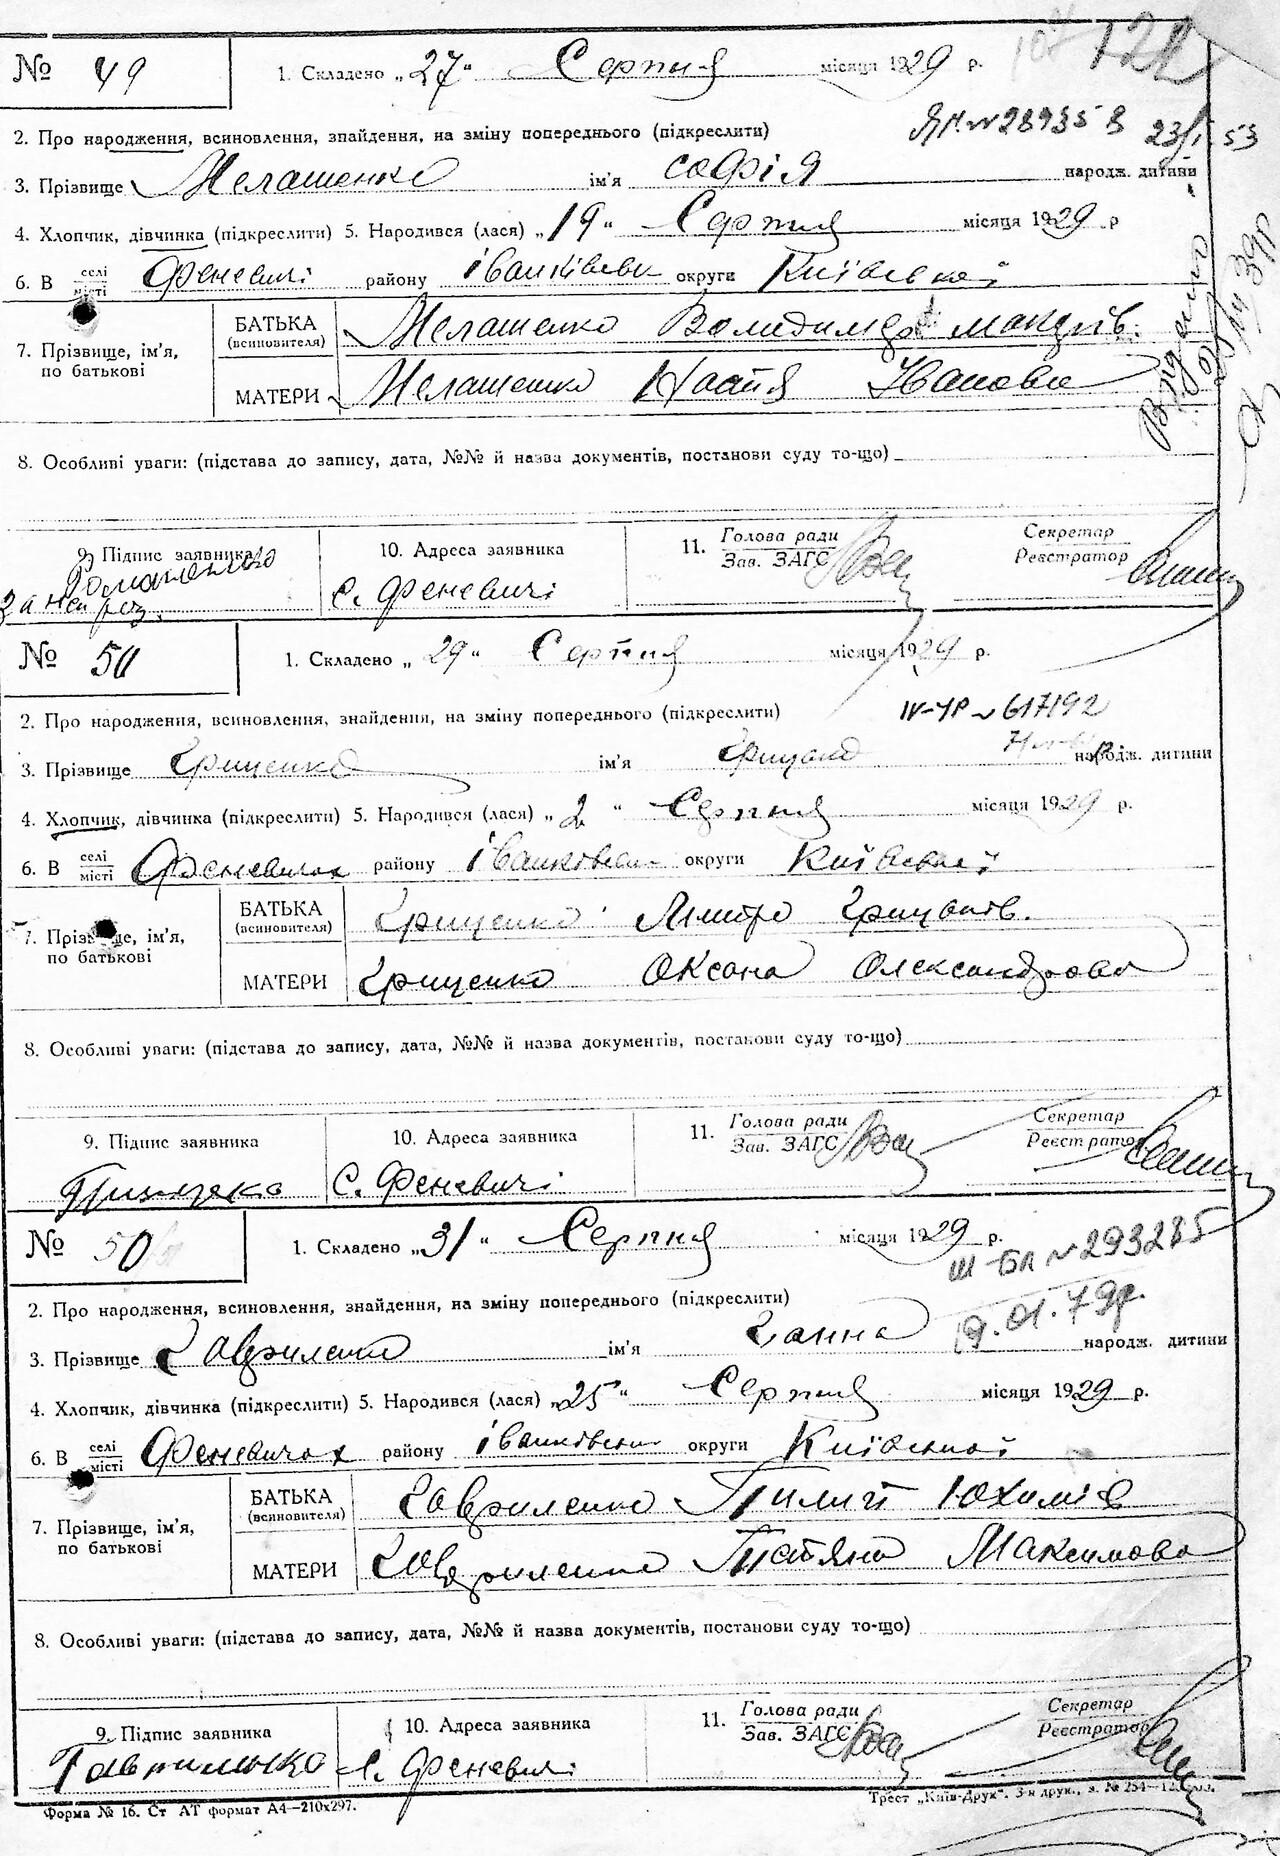 № 49 1. Складено „27" Серпня місяця 1929 р. 122
2. Про народження, всиновлення, знайдення, на зміну попереднього (підкреслити) 23/I 53
3. Прізвище Мелашенко ім'я Софія народж. дитини
4. Хлопчик, дівчинка (підкреслити) 5. Народився (лася) „19" Серпня місяця 1929 р
6. В селі місті Феневичі району Іванківськ округи Київської
7. Прізвище, ім'я, по батькові
БАТЬКА (всиновителя) Мелашенко Володимир
МАТЕРИ Мелашенко Настя Іванова
Видано
8. Особливі уваги: (підстава до запису, дата, №№ й назва документів, постанови суду то-що)
9. Підпис заявника 10. Адреса заявника 11. Голова ради Зав. ЗАГС Секретар Реєстратор
за неп
с. Феневичі
№ 50 1. Складено „29" Серпня місяця 1929 р.
2. Про народження, всиновлення, знайдення, на зміну попереднього (підкреслити) IV-УР № 617192
3. Прізвище Грищенко ім'я Грицько народж. дитини
4. Хлопчик, дівчинка (підкреслити) 5. Народився (лася) „2" Серпня місяця 1929 р.
6. В селі місті Феневичах району Іванківськ округи Київської
7. Прізвище, ім'я, по батькові
БАТЬКА (всиновителя) Грищенко Дмитро Грицьків.
МАТЕРИ Грищенко Оксана Олександрова
8. Особливі уваги: (підстава до запису, дата, №№ й назва документів, постанови суду то-що)
9. Підпис заявника 10. Адреса заявника 11. Голова ради Зав. ЗАГС Секретар Реєстратор
с. Феневичі
№ 50 1. Складено „31" Серпня місяця 1929 р.
III-БЛ № 293285
2. Про народження, всиновлення, знайдення, на зміну попереднього (підкреслити) 9.01.79р.
3. Прізвище Гавриленко ім'я Ганна народж. дитини
4. Хлопчик, дівчинка (підкреслити) 5. Народився (лася) „25" Серпня місяця 1929 р.
6. В селі місті Феневичах району Іванківськ округи Київської
7. Прізвище, ім'я, по батькові
БАТЬКА (всиновителя) Гавриленко Пилип Юхимів
МАТЕРИ Гавриленко Тетяна Максимова
8. Особливі уваги: (підстава до запису, дата, №№ й назва документів, постанови суду то-що)
9. Підпис заявника 10. Адреса заявника 11. Голова ради Зав. ЗАГС Секретар Реєстратор
с. Феневичі
Форма № 16. Ст АТ формат А4—210х297. Трест „Київ-Друк". 3-я друк., з. № 254